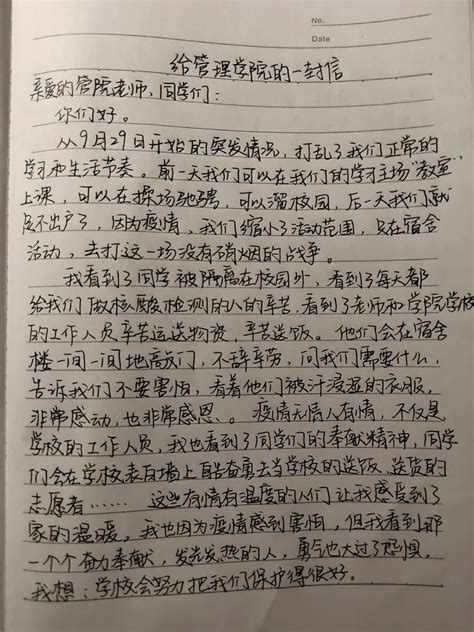 No.
Date
给管理学院的一封信
亲爱的管院老师、同学们:
你们好。
从9月29日开始的突发情况,打乱了我们正常的
学习和生活节奏。前一天我们可以在我们的学习主场“教室”
上课,可以在操场驰骋,可以溜校园,后一天我们就
足不出户了,因为疫情,我们缩小了活动范围,只在宿舍
活动,去打这一场没有硝烟的战争。
我看到了同学被隔离在校园外,看到了每天都
给我们做核酸检测的人的辛苦,看到了老师和学院学校
的工作人员辛苦运送物资,辛苦送饭。他们会在宿舍
楼一间一间地敲门,不辞辛劳,问我们需要什么,
告诉我们不要害怕,看着他们被汗浸湿的衣服,
非常感动,也非常感恩。。疫情无情人有情,不仅是
学校的工作人员,我也看到了同学们的奉献精神,同学
们会在学校表白墙上自告奋勇去当学校的送饭、送货的
志愿者……这些有情有温度的人们让我感受到了
家的温暖,我也因为疫情感到害怕,但我看到那
一个个奋力奉献,发光发热的人,勇气也大过了恐惧,
我想:学校会努力把我们保护得很好。